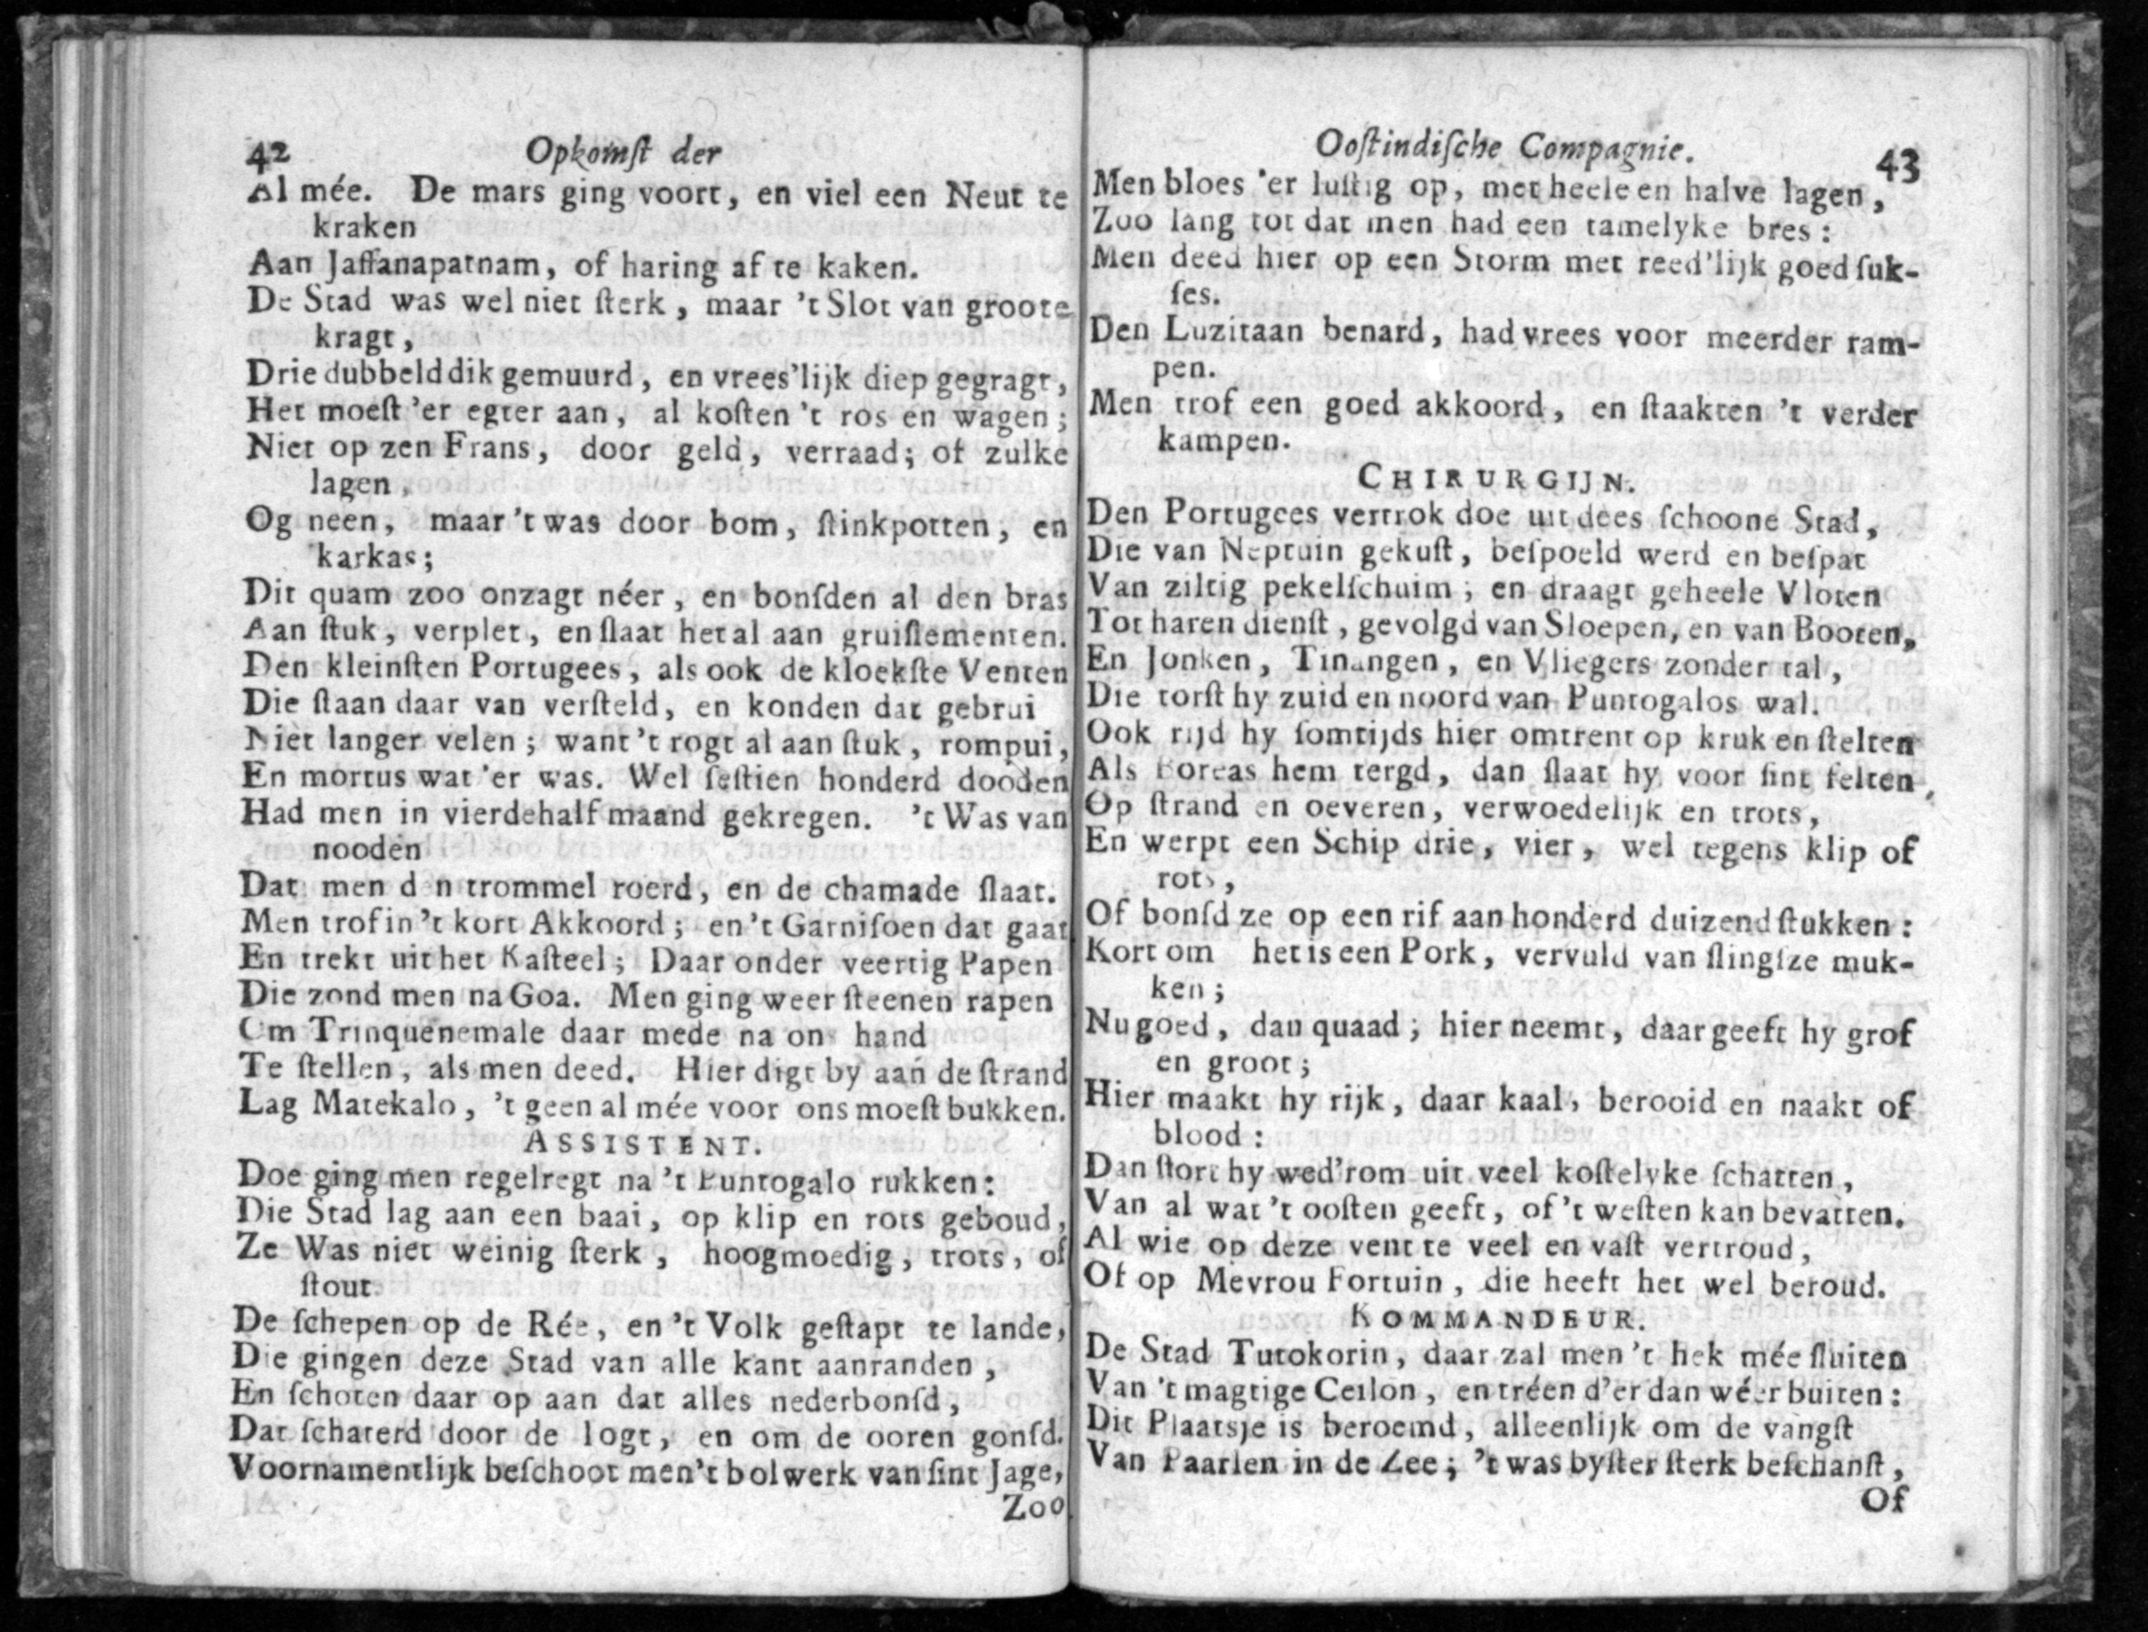 42 Opkomſt der
Al mée. De mars ging voort, en viel een Neut te
kraken
Aan Jaffanapatnam, of haring af te kaken.
De Stad was wel niet ſterk, maar 't Slot van groote
kragt,
Drie dubbeld dik gemuurd, en vrees'lijk diep gegragt,
Het moeſt 'er egter aan, al koſten 't ros en wagen;
Niet op zen Frans, door geld, verraad; of zulke
lagen,
Og neen, maar 't was door bom, ſtinkpotten, en
karkas;
Dit quam zoo onzagt néer, en bonſden al den bras
Aan ſtuk, verplet, en ſlaat het al aan gruiſlementen.
Den kleinſten Portugees, als ook de kloekſte Venten
Die ſtaan daar van verſteld, en konden dat gebrui
Niet langer velen; want 't rogt al aan ſtuk, rompui,
En mortus wat 'er was. Wel ſeſtien honderd dooden
Had men in vierdehalf maand gekregen. 't Was van
nooden
Dat men den trommel roerd, en de chamade ſlaat.
Men trof in 't kort Akkoord; en 't Garniſoen dat gaat
En trekt uit het Kaſteel; Daar onder veertig Papen
Die zond men na Goa. Men ging weer ſteenen rapen
Om Trinquenemale daar mede na ons hand
Te ſtellen, als men deed. Hier digt by aan de ſtrand
Lag Matekalo, 't geen al mée voor ons moeſt bukken.
ASSISTENT.
Doe ging men regelregt na 't Puntogalo rukken:
Die Stad lag aan een baai, op klip en rots geboud,
Ze Was niet weinig ſterk, hoogmoedig, trots, of
ſtout.
De ſchepen op de Rée, en 't Volk geſtapt te lande,
Die gingen deze Stad van alle kant aanranden,
En ſchoten daar op aan dat alles nederbonſd,
Dat ſchaterd door de logt, en om de ooren gonſd.
Voornamentlijk beſchoot men 't bolwerk van ſint Jage,
Zoo
Ooſtindiſche Compagnie. 43
Men bloes 'er luſtig op, met heele en halve lagen,
Zoo lang tot dat men had een tamelyke bres:
Men deed hier op een Storm met reed'lijk goed ſuk-
ſes.
Den Luzitaan benard, had vrees voor meerder ram-
pen.
Men trof een goed akkoord, en ſtaakten 't verder
kampen.
CHIRURGIJN.
Den Portugees vertrok doe uit dees ſchoone Stad,
Die van Neptuin gekuſt, beſpoeld werd en beſpat
Van ziltig pekelſchuim; en draagt geheele Vloten
Tot haren dienſt, gevolgd van Sloepen, en van Booten,
En Jonken, Tinangen, en Vliegers zonder tal,
Die torſt hy zuid en noord van Puntogalos wal.
Ook rijd hy ſomtijds hier omtrent op kruk en ſtelten
Als Boreas hem tergd, dan ſlaat hy voor ſint felten,
Op ſtrand en oeveren, verwoedelijk en trots,
En werpt een Schip drie, vier, wel tegens klip of
rots,
Of bonſd ze op een rif aan honderd duizend ſtukken:
Kort om het is een Pork, vervuld van ſlingſze muk-
ken;
Nu goed, dan quaad; hier neemt, daar geeft hy grof
en groot;
Hier maakt hy rijk, daar kaal, berooid en naakt of
blood:
Dan ſtort hy wed'rom uit veel koſtelyke ſchatten,
Van al wat 't ooſten geeft, of 't weſten kan bevatten.
Al wie op deze vent te veel en vaſt vertroud,
Of op Mevrou Fortuin, die heeft het wel beroud.
KOMMANDEUR.
De Stad Tutokorin, daar zal men 't hek mée ſluiten
Van 't magtige Ceilon, en tréen d'er dan wéer buiten:
Dit Plaatsje is beroemd, alleenlijk om de vangſt
Van Paarlen in de Zee; 't was byſter ſterk beſchanſt,
Of